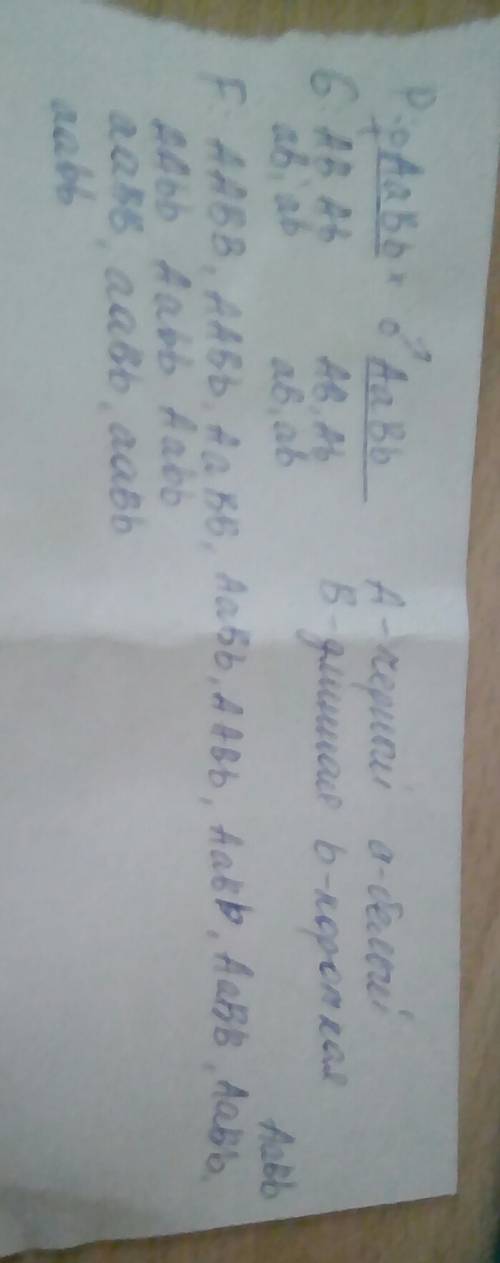 P: ♀ AaBb × ♂ AaBb А-черный а-белый
G AB Ab AB, Ab В-длинная b-короткая
aB, ab aB, ab
Aabb
F: AABB, AABb, AaBB, AaBb, AABb, AaBb,
AAbb Aabb Aabb
aaBB, aaBb, aaBb
aabb